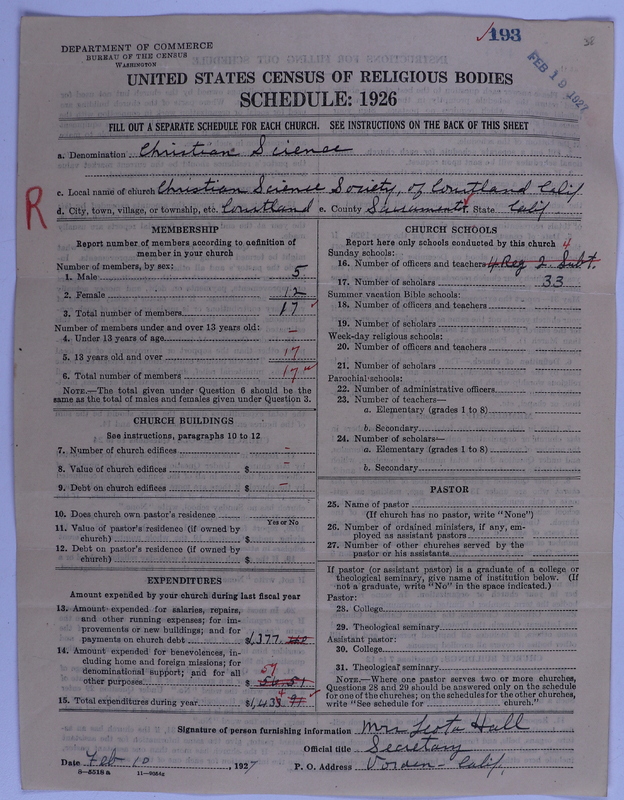 193
38
FEB 19 1927
DEPARTMENT OF COMMERCE
BUREAU OF THE CENSUS
WASHINGTON
UNITED STATES CENSUS OF RELIGIOUS BODIES
SCHEDULE: 1926
FILL OUT A SEPARATE SCHEDULE FOR EACH CHURCH. SEE INSTRUCTIONS ON THE BACK OF THIS SHEET
a. Denomination Christian Science
c. Local name of church Christian Science Society, of Courtland Calif
d. City, town, village, or township, etc. Courtland e. County Sacramento State Calif
R
MEMBERSHIP
Report number of members according to definition of
member in your church
Number of members, by sex:
1. Male 5
2. Female 12
3. Total number of members 17
Number of members under and over 13 years old:
4. Under 13 years of age –
5. 13 years old and over 17
6. Total number of members 17
NOTE.—The total given under Question 6 should be the
same as the total of males and females given under Question 3.
CHURCH BUILDINGS
See instructions, paragraphs 10 to 12
7. Number of church edifices –
8. Value of church edifices $ –
9. Debt on church edifices $ –
10. Does church own pastor's residence
Yes or No
11. Value of pastor's residence (if owned by
church) $
12. Debt on pastor's residence (if owned by
church) $
EXPENDITURES
Amount expended by your church during last fiscal year
13. Amount expended for salaries, repairs,
and other running expenses; for im-
provements or new buildings; and for
payments on church debt 1,377.
14. Amount expended for benevolences, in-
cluding home and foreign missions; for
denominational support; and for all 57
other purposes $ 56.57
15. Total expenditures during year $1,433 4
CHURCH SCHOOLS
Report here only schools conducted by this church 4
Sunday schools:
16. Number of officers and teachers 4 Reg 2 Subt.
17. Number of scholars 33
Summer vacation Bible schools:
18. Number of officers and teachers
19. Number of scholars
Week-day religious schools:
20. Number of officers and teachers
21. Number of scholars
Parochial schools:
22. Number of administrative officers
23. Number of teachers—
a. Elementary (grades 1 to 8)
b. Secondary
24. Number of scholars—
a. Elementary (grades 1 to 8)
b. Secondary
PASTOR
25. Name of pastor
(If church has no pastor, write "None")
26. Number of ordained ministers, if any, em-
ployed as assistant pastors
27. Number of other churches served by the
pastor or his assistants
If pastor (or assistant pastor) is a graduate of a college or
theological seminary, give name of institution below. (If
not a graduate, write "No" in the space indicated.)
Pastor:
28. College
29. Theological seminary
Assistant pastor:
30. College
31. Theological seminary
NOTE.—Where one pastor serves two or more churches,
Questions 28 and 29 should be answered only on the schedule
for one of the churches; on the schedules for the other churches,
write "See schedule for church."
Signature of person furnishing information Mrs Leota Hall
Official title Secretary
Date Feb 10, 1927 P. O. Address Vorden - Calif.
8—5518 a 11—9054z